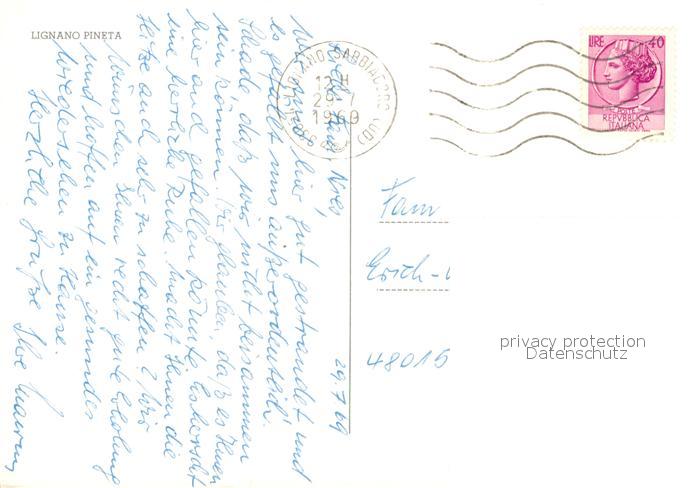 LIGNANO PINETA
LIGNANO SABBIADORO (UD)
12 H
29-7
1969
LIRE 40
POSTE
REPVBBLICA
ITALIANA
29.7.69
wir sind hier gut gestrandet und
es gefällt uns außerordentlich.
Schade, daß wir nicht beisammen
sein können. Wir glauben, daß es Ihnen
hier auch gefallen könnte. Es herrscht
eine herrliche Ruhe. Macht Ihnen die
Hitze auch sehr zu schaffen? Wir
wünschen Ihnen recht gute Erholung
und hoffen auf ein gesundes
Wiedersehen zu Hause.
Herzliche Grüße Ihre
Fam
Erich-
48015
privacy protection
Datenschutz